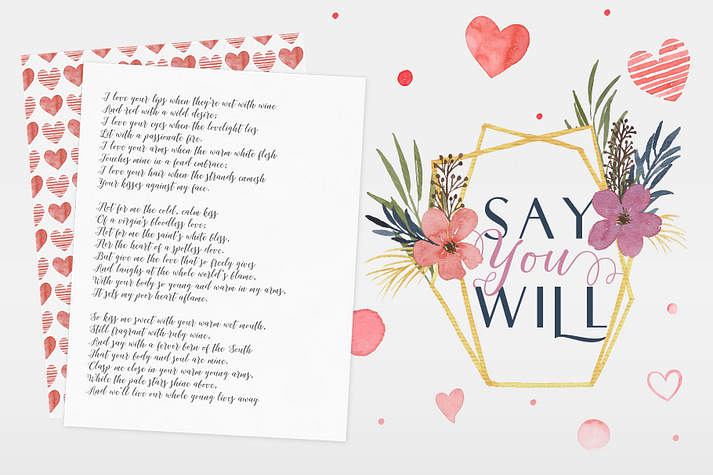 I love your lips when they're wet with wine
And red with a wild desire;
I love your eyes when the lovelight lies
Lit with a passionate fire.
I love your arms when the warm white flesh
Touches mine in a fond embrace;
I love your hair when the strands enmesh
Your kisses against my face.

Not for me the cold, calm kiss
Of a virgin's bloodless love;
Not for me the saint's white bliss,
Nor the heart of a spotless dove.
But give me the love that so freely gives
And laughs at the whole world's blame,
With your body so young and warm in my arms,
It sets my poor heart aflame.

So kiss me sweet with your warm wet mouth,
Still fragrant with ruby wine,
And say with a fervor born of the South
That your body and soul are mine.
Clasp me close in your warm young arms,
While the pale stars shine above,
And we'll live our whole young lives away

SAY
You
WILL